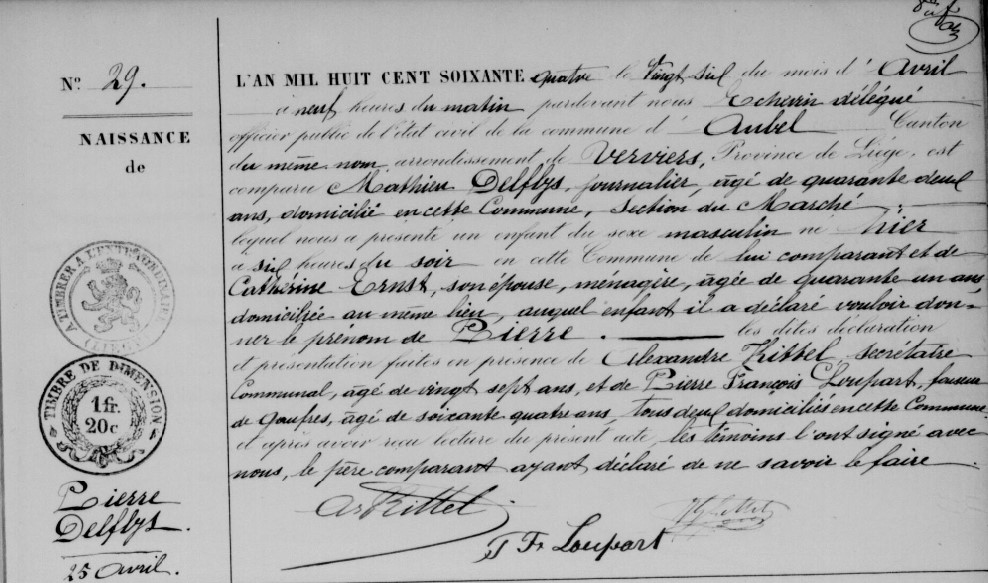 Nº 29.
NAISSANCE
de
L'AN MIL HUIT CENT SOIXANTE quatre le vingt six du mois d' Avril
à neuf heures du matin pardevant nous Echevin délégué
officier public de l'état civil de la commune d' Aubel Canton
du même nom, arrondissement de Verviers, Province de Liége, est
comparu Mathieu Delflys, journalier, âgé de quarante deux
ans, domicilié en cette Commune, section du Marché
lequel nous a présenté un enfant du sexe masculin né hier
à six heures du soir en cette Commune de lui comparant et de
Cathérine Ernst, son épouse, ménagère, âgée de quarante un ans
domiciliée au même lieu, auquel enfant il a déclaré vouloir don-
ner le prénom de Pierre. les dites déclaration
et présentation faites en présence de Alexandre Kittel, secrétaire
Communal, âgé de vingt sept ans, et de Pierre François Loupart, faiseur
de gaufres, âgé de soixante quatre ans tous deux domiciliés en cette Commune.
et après avoir reçu lecture du présent acte, les témoins l'ont signé avec
nous, le père comparant ayant déclaré de ne savoir le faire.
A. Kittel
P Fs Loupart
TIMBRE DE DIMENSION
1 fr.
20c
Pierre
Delflys.
25 avril.